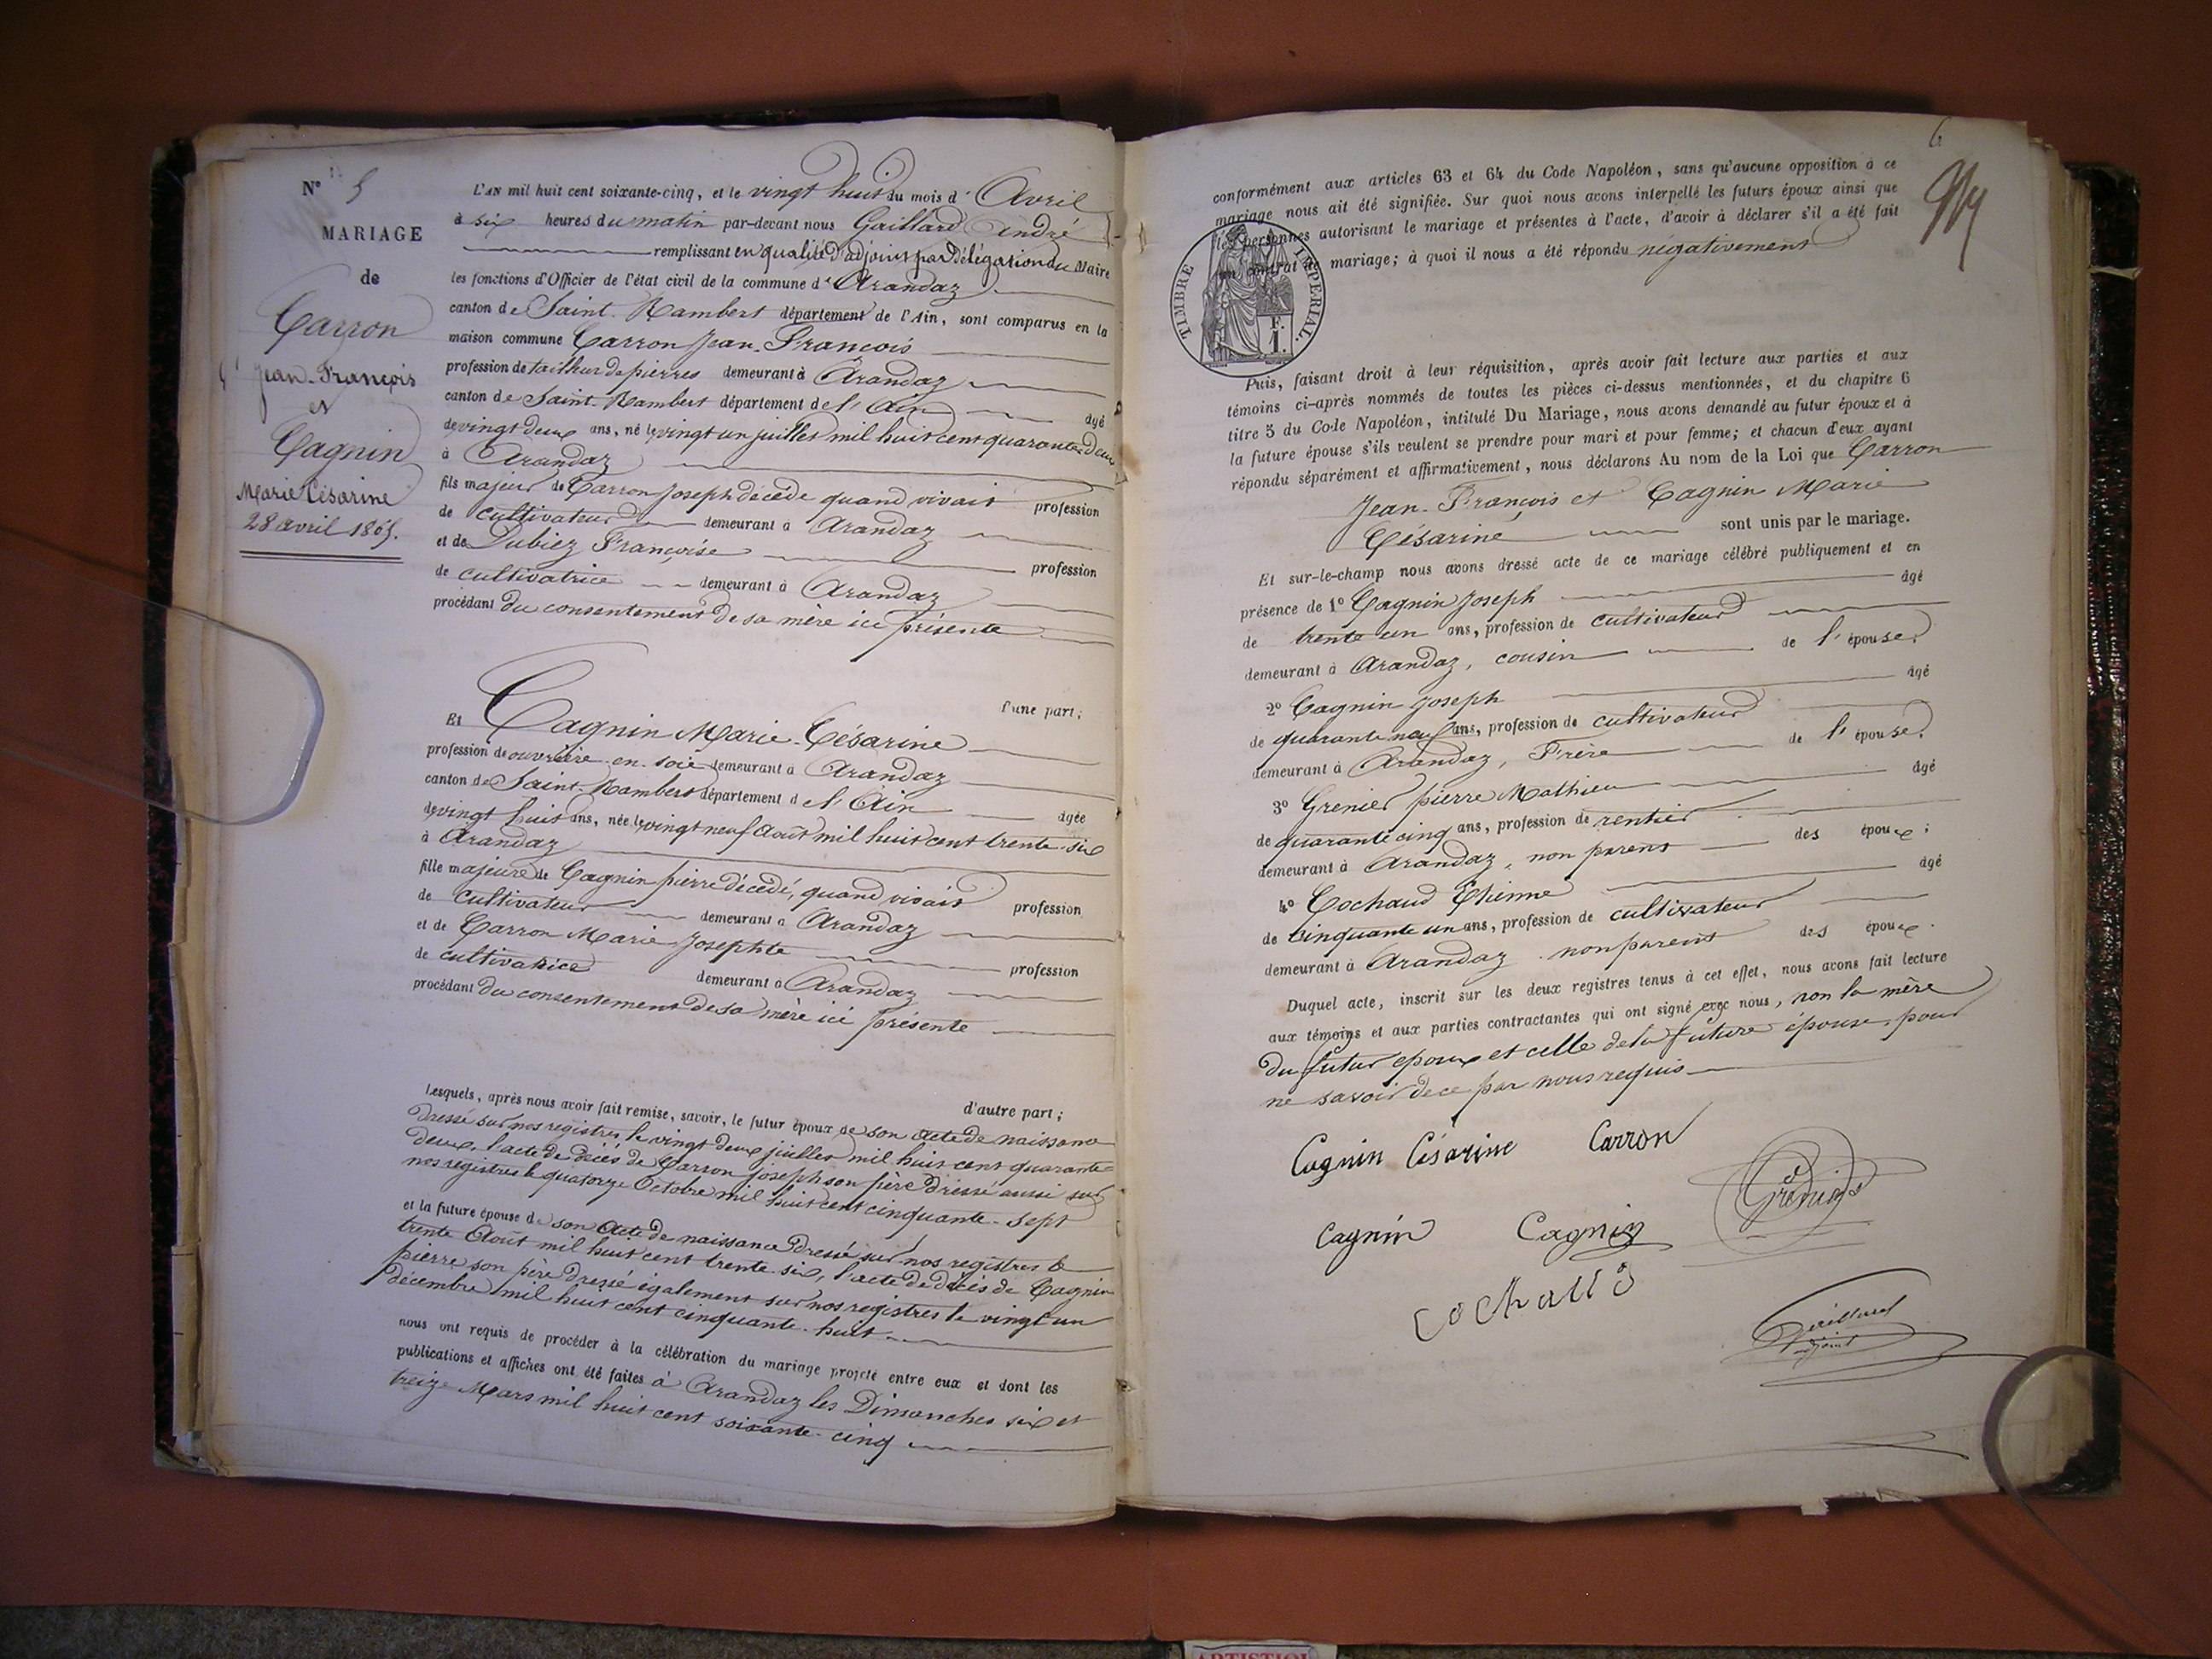 N° 5
MARIAGE
de
Carron
Jean-François
et
Cagnin
Marie Césarine
28 avril 1865.
L'AN mil huit cent soixante-cinq, et le vingt huit du mois d'Avril
à six heures du matin par-devant nous Gaillard André
remplissant en qualité d'adjoint par délégation du Maire
les fonctions d'Officier de l'état civil de la commune d'Arandaz
canton de Saint-Rambert département de l'Ain, sont comparus en la
maison commune Carron Jean-François
profession de tailleur de pierres demeurant à Arandaz
canton de Saint-Rambert département de l'Ain âgé
de vingt deux ans, né le vingt un juillet mil huit cent quarante deux
à Arandaz
fils majeur de Carron Joseph décédé quand vivait profession
de cultivateur demeurant à Arandaz
et de Dubiez Françoise profession
de cultivatrice demeurant à Arandaz
procédant du consentement de sa mère ici présente
d'une part;
Et Cagnin Marie-Césarine
profession de ouvrière en soie demeurant à Arandaz
canton de Saint-Rambert département de l'Ain âgée
de vingt huit ans, née le vingt neuf Août mil huit cent trente-six
à Arandaz
fille majeure de Cagnin pierre décédé, quand vivait profession
de cultivateur demeurant à Arandaz
et de Carron Marie Josephte profession
de cultivatrice demeurant à Arandaz
procédant du consentement de sa mère ici présente
d'autre part;
Lesquels, après nous avoir fait remise, savoir, le futur époux de son acte de naissance
dressé sur nos registres le vingt deux juillet mil huit cent quarante-
deux, l'acte de décès de Carron joseph son père dressé aussi sur
nos registres le quatorze Octobre mil huit cent cinquante-sept
et la future épouse de son acte de naissance dressé sur nos registres le
trente Août mil huit cent trente six, l'acte de décès de Cagnin
pierre son père dressé également sur nos registres le vingt un
décembre mil huit cent cinquante-huit
nous ont requis de procéder à la célébration du mariage projeté entre eux et dont les
publications et affiches ont été faites à Arandaz les Dimanches six et
treize Mars mil huit cent soixante-cinq
6
conformément aux articles 63 et 64 du Code Napoléon, sans qu'aucune opposition à ce
mariage nous ait été signifiée. Sur quoi nous avons interpellé les futurs époux ainsi que
les personnes autorisant le mariage et présentes à l'acte, d'avoir à déclarer s'il a été fait
un contrat de mariage; à quoi il nous a été répondu négativement
TIMBRE IMPERIAL.
F.
1.
Puis, faisant droit à leur réquisition, après avoir fait lecture aux parties et aux
témoins ci-après nommés de toutes les pièces ci-dessus mentionnées, et du chapitre 6
titre 5 du Code Napoléon, intitulé Du Mariage, nous avons demandé au futur époux et à
la future épouse s'ils veulent se prendre pour mari et pour femme; et chacun d'eux ayant
répondu séparément et affirmativement, nous déclarons Au nom de la Loi que Carron
Jean-François et Cagnin Marie
Césarine sont unis par le mariage.
Et sur-le-champ nous avons dressé acte de ce mariage célébré publiquement et en
présence de 1° Cagnin Joseph âgé
de trente un ans, profession de cultivateur
demeurant à Arandaz, cousin de l'épouse.
2° Cagnin Joseph âgé
de quarante neuf ans, profession de cultivateur
demeurant à Arandaz, Frère de l'épouse.
3° Grenier pierre Mathieu âgé
de quarante cinq ans, profession de rentier
demeurant à Arandaz, non parent des époux;
4° Cochaud Etienne âgé
de cinquante un ans, profession de cultivateur
demeurant à Arandaz non parent des époux.
Duquel acte, inscrit sur les deux registres tenus à cet effet, nous avons fait lecture
aux témoins et aux parties contractantes qui ont signé avec nous, non la mère
du futur époux et celle de la future épouse, pour
ne savoir de ce par nous requis
Cagnin Césarine Carron
Cagnin Cagnin
Gaillard
adjoint